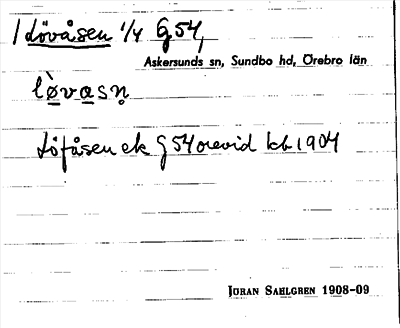 / Lövåsen 1/4 G 54,
Askersunds sn, Sundbo hd, Örebro län
lø̀vas n̥
Löfåsen ek G 54 orevid kb 1904
JÖRAN SAHLGREN 1908-09